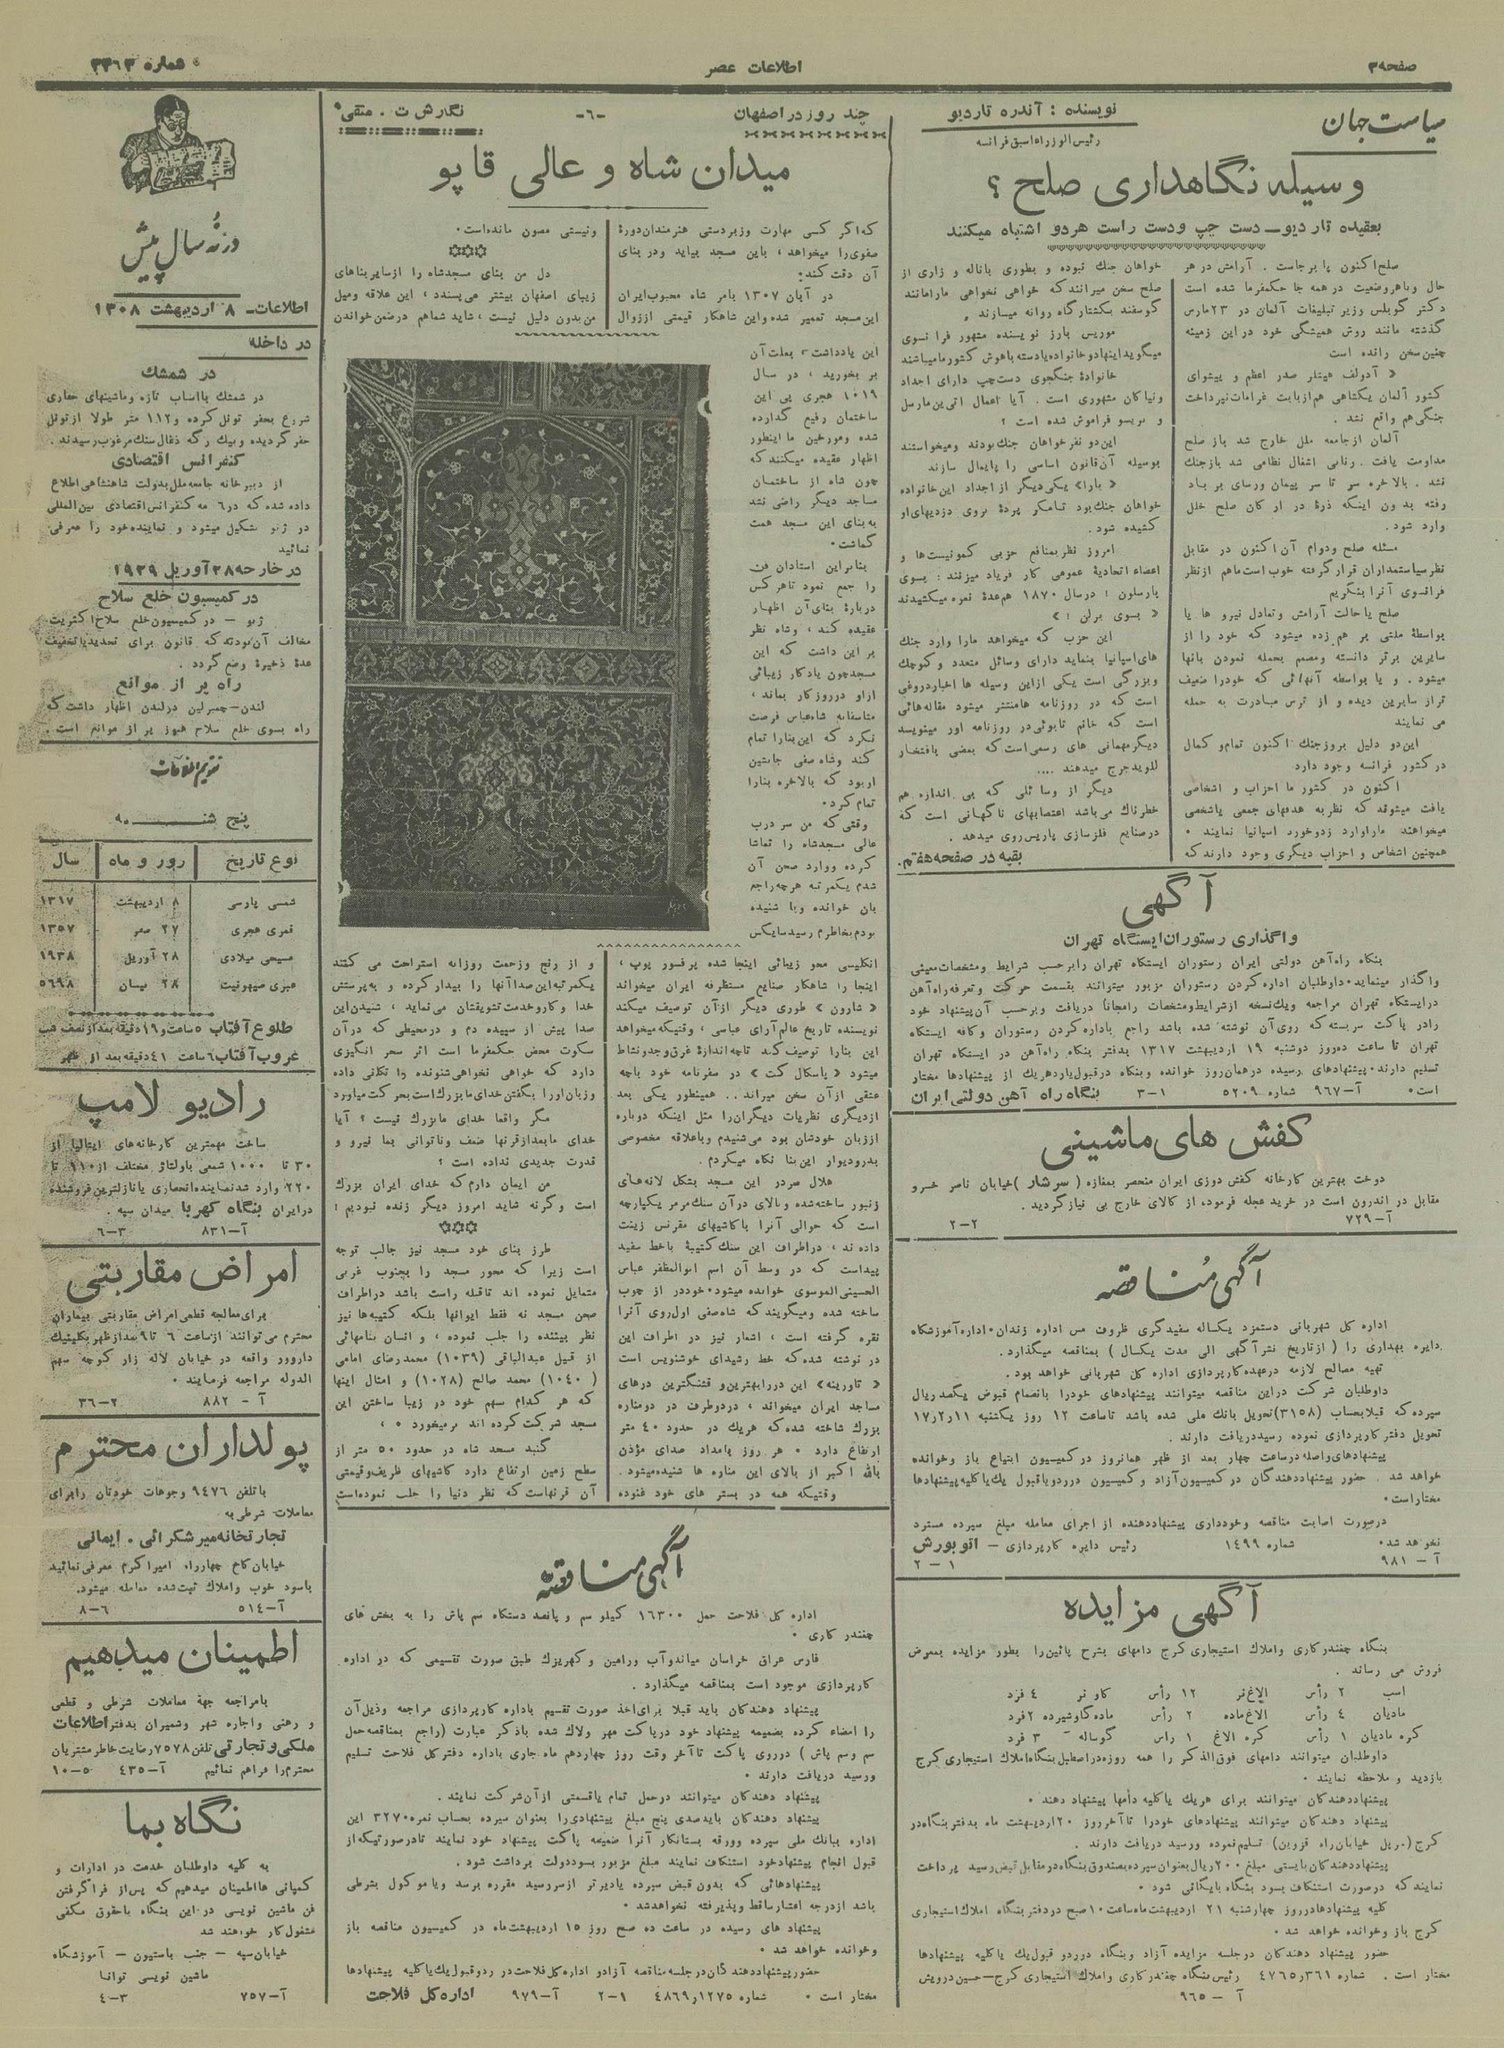 صفحه ۳
اطلاعات عصر
شماره ۳۳۶۳
سیاست جهان
نویسنده : آندره تاردیو
رئیس الوزراء اسبق فرانسه
وسیله نگاهداری صلح ؟
بعقیده تاردیو ــ دست چپ و دست راست هردو اشتباه میکنند
صلح اکنون پا برجاست . آرامش در هر
حال و باهر وضعیت در همه جا حکمفرما شده است
دکتر گوبلس وزیر تبلیغات آلمان در ۲۳ مارس
گذشته مانند روش همیشگی خود در این زمینه
چنین سخن رانده است
« آدولف هیتلر صدر اعظم و پیشوای
کشور آلمان یکشاهی هم از بابت غرامات نپرداخت
جنگی هم واقع نشد .
آلمان از جامعه ملل خارج شد باز صلح
مداومت یافت . رنانی اشغال نظامی شد باز جنک
نشد . بالاخره سر تا سر پیمان ورسای بر باد
رفته بدون اینکه ذرۀ در ارکان صلح خلل
وارد شود .
مسئله صلح و دوام آن اکنون در مقابل
نظر سیاستمداران قرار گرفته خوب است ماهم از نظر
فرانسوی آنرا بنگریم
صلح یا حالت آرامش و تعادل نیرو ها یا
بواسطۀ ملتی بر هم زده میشود که خود را از
سایرین برتر دانسته و مصمم بحمله نمودن بانها
میشود . و یا بواسطه آنهائی که خود را ضعیف
تر از سایرین دیده و از ترس مبادرت به حمله
می نمایند
این دو دلیل بروز جنک اکنون تمام و کمال
در کشور فرانسه وجود دارد
اکنون در کشور ما احزاب و اشخاصی
یافت میشوند که نظر به هدفهای جمعی یا شخصی
میخواهند مارا وارد زدوخورد اسپانیا نمایند .
همچنین اشخاص و احزاب دیگری وجود دارند که
خواهان جنک نبوده و بطوری باناله و زاری از
صلح سخن میرانند که خواهی نخواهی مارا مانند
گوسفند بکشتارگاه روانه میسازند
موریس بارز نویسنده مشهور فرانسوی
میگوید اینها دو خانواده یا دسته باهوش کشور ما میباشند
خانوادۀ جنگجوی دست چپ دارای اجداد
و نیاکان مشهوری است . آیا اعمال اتی بن مارسل
و بریسو فراموش شده است ؟
این دو نفر خواهان جنک بودند و میخواستند
بوسیله آن قانون اساسی را پایمال سازند
« بارا» یکی دیگر از اجداد این خانواده
خواهان جنک بود تا مگر پردۀ بروی دزدیهای او
کشیده شود .
امروز نظر بمنافع حزبی کمونیست ها و
اعضاء اتحادیۀ عمومی کار فریاد میزنند : بسوی
بارسلون ؛ در سال ۱۸۷۰ هم عدۀ نعره میکشیدند
« بسوی برلن !»
این حزب که میخواهد مارا وارد جنک
های اسپانیا بنماید دارای وسائل متعدد و کوچک
و بزرگی است یکی از این وسیله ها اخبار دروغی
است که در روزنامه ها منتشر میشود مقاله هائی
است که خانم تابوئی در روزنامه اور مینویسد
دیگر مهمانی های رسمی است که بعضی بافتخار
للوید جرج میدهند ....
دیگر از وسائلی که بی اندازه هم
خطرناک می باشد اعتصابهای ناگهانی است که
در صنایع فلزسازی پاریس روی میدهد .
بقیه در صفحه هفتم.
آگهی
واگذاری رستوران ایستگاه تهران
بنگاه راه آهن دولتی ایران رستوران ایستگاه تهران را برحسب شرایط و مشخصات معینی
واگذار مینماید. داوطلبان اداره کردن رستوران مزبور میتوانند بقسمت حرکت و تعرفه راه آهن
در ایستگاه تهران مراجعه و یک نسخه از شرایط و مشخصات را مجاناً دریافت و برحسب آن پیشنهاد خود
را در پاکت سربسته که روی آن نوشته شده باشد راجع باداره کردن رستوران و کافه ایستگاه
تهران تا ساعت ده روز دوشنبه ۱۹ اردیبهشت ۱۳۱۷ بدفتر بنگاه راه آهن در ایستگاه تهران
تسلیم دارند. پیشنهادهای رسیده در همان روز خوانده و بنگاه در قبول یا رد هریک از پیشنهادها مختار
است . آ–۹۶۷ شماره ۵۲۰۹ ۱–۳ بنگاه راه آهن دولتی ایران
کفش های ماشینی
دوخت بهترین کارخانه کفش دوزی ایران منحصر بمغازه (سرشار) خیابان ناصر خسرو
مقابل در اندرون است در خرید عجله فرموده، از کالای خارج بی نیاز گردید .
آ–۷۲۹ ۲–۲
آگهی مناقصه
اداره کل شهربانی دستمزد یکساله سفیدگری ظروف مس اداره زندان . اداره آموزشگاه
دایره بهداری را ( از تاریخ نشر آگهی الی مدت یکسال ) بمناقصه میگذارد.
تهیه مصالح لازمه در عهده کارپردازی اداره کل شهربانی خواهد بود.
داوطلبان شرکت در این مناقصه میتوانند پیشنهادهای خود را بانضمام قبوض یکصد ریال
سپرده که قبلا بحساب (۳۱۵۸) تحویل بانک ملی شده باشد تا ساعت ۱۲ روز یکشنبه ۱۷ر۲ر۱۱
تحویل دفتر کارپردازی نموده رسید دریافت دارند .
پیشنهادهای واصله در ساعت چهار بعد از ظهر همانروز در کمیسیون ابتیاع باز و خوانده
خواهد شد . حضور پیشنهاد دهندگان در کمیسیون آزاد و کمیسیون در رد و یا قبول یک یا کلیه پیشنهادها
مختار است .
در صورت اصابت مناقصه و خودداری پیشنهاد دهنده از اجرای معامله مبلغ سپرده مسترد
نخواهد شد . شماره ۱۴۹۹ رئیس دایره کارپردازی – اتو بورش
آ – ۹۸۱ ۱ – ۲
آگهی مزایده
بنگاه چغندر کاری و املاک استیجاری کرج دامهای بشرح پائین را بطور مزایده بمعرض
فروش می رساند .
اسب ۲ رأس الاغ نر ۱۲ رأس گاو نر ۴ فرد
مادیان ۴ رأس الاغ ماده ۲ رأس ماده گاو شیرده ۲ فرد
کره مادیان ۱ رأس کره الاغ ۱ راس گوساله – ۳ فرد
داوطلبان میتوانند دامهای فوق الذکر را همه روزه در اصطبل بنگاه املاک استیجاری کرج
بازدید و ملاحظه نمایند .
پیشنهاد دهندگان میتوانند برای هریک یا کلیه دامها پیشنهاد دهند .
پیشنهاد دهندگان میتوانند پیشنهادهای خود را تا آخر روز ۲۰ اردیبهشت ماه بدفتر بنگاه در
کرج (سرپل خیابان راه قزوین) تسلیم نموده و رسید دریافت دارند .
پیشنهاد دهندگان بایستی مبلغ ۲۰۰ ریال بعنوان سپرده بصندوق بنگاه در مقابل قبض رسید پرداخت
نمایند که در صورت استنکاف بسود بنگاه بایگانی شود .
کلیه پیشنهادها در روز چهارشنبه ۲۱ اردیبهشت ماه ساعت ۱۰ صبح در دفتر بنگاه املاک استیجاری
کرج باز و خوانده خواهد شد .
حضور پیشنهاد دهندگان در جلسه مزایده آزاد و بنگاه در رد و قبول یک یا کلیه پیشنهادها
مختار است . شماره ۴۷۶۵ر۳۶۱ رئیس بنگاه چغندر کاری و املاک استیجاری کرج – حسین درویش
آ – ۹۶۵
چند روز در اصفهان
–۶–
نگارش ت . متقی
میدان شاه و عالی قاپو
که اگر کسی مهارت و زبردستی هنرمندان دورۀ
صفوی را میخواهد ، باین مسجد بیاید و در بنای
آن دقت کند؛
در آبان ۱۳۰۷ بامر شاه محبوب ایران
این مسجد تعمیر شده و این شاهکار قیمتی از زوال
و نیستی مصون مانده است .
دل من بنای مسجد شاه را از سایر بناهای
زیبای اصفهان بیشتر می پسندد ، این علاقه و میل
من بدون دلیل نیست ، شاید شما هم در ضمن خواندن
این یادداشت ، بعلت آن
بر بخورید ، در سال
۱۰۱۹ هجری پی این
ساختمان رفیع گذارده
شده و مورخین ما اینطور
اظهار عقیده میکنند که
چون شاه از ساختمان
مساجد دیگر راضی نشد
به بنای این مسجد همت
گماشت .
بنابر این استادان فن
را جمع نمود تا هر کس
دربارۀ بنای آن اظهار
عقیده کند ، و شاه نظر
بر این داشت که این
مسجد چون یادگار زیبائی
از او در روزگار بماند ،
متاسفانه شاه عباس فرصت
نکرد که این بنا را تمام
کند و شاه صفی جانشین
او بود که بالاخره بنا را
تمام کرد .
وقتی که من سر درب
عالی مسجد شاه را تماشا
کرده و وارد صحن آن
شدم یکمرتبه هرچه راجع
بان خوانده و یا شنیده
بودم بخاطرم رسید سایکس
انگلیسی محو زیبائی اینجا شده پرفسور پوپ ،
اینجا را شاهکار صنایع مستظرفه ایران میخواند
« شاردن » طوری دیگر از آن توصیف میکند
نویسنده تاریخ عالم آرای عباسی ، وقتیکه میخواهد
این بنا را توصیف کند تا چه اندازۀ غرق وجد و نشاط
میشود « پاسکال کت » در سفرنامه خود باچه
عشقی از آن سخن میراند .. همینطور یکی بعد
از دیگری نظریات دیگران را مثل اینکه دوباره
از زبان خودشان بود می شنیدم و با علاقه مخصوصی
بدر و دیوار این بنا نگاه میکردم .
هلال سردر این مسجد بشکل لانه های
زنبور ساخته شده و بالای در آن سنک مرمر یکپارچه
است که حوالی آنرا با کاشیهای مقرنس زینت
داده اند ، در اطراف این سنک کتیبۀ با خط سفید
پیداست که در وسط آن اسم ابوالمظفر عباس
الحسینی الموسوی خوانده میشود . خود در از چوب
ساخته شده و میگویند که شاه صفی اول روی آنرا
نقره گرفته است ، اشعار نیز در اطراف این
در نوشته شده که خط رشیدای خوشنویس است
« تاورینه» این در را بهترین و قشنگترین درهای
مساجد ایران میخواند ، در دو طرف در دو مناره
بزرگ ساخته شده که هریک در حدود ۴۰ متر
ارتفاع دارد . هر روز بامداد صدای مؤذن
بالله اکبر از بالای این مناره ها شنیده میشود.
وقتیکه همه در بستر های خود غنوده
و از رنج و زحمت روزانه استراحت می کنند
یکمرتبه این صدا آنها را بیدار کرده و به پرستش
خدا و کار و خدمت تشویقشان می نماید ، شنیدن این
صدا پیش از سپیده دم و در محیطی که در آن
سکوت محض حکمفرما است اثر سحر انگیزی
دارد که خواهی نخواهی شنونده را تکانی داده
و زبان او را بگفتن خدای ما بزرک است بحرکت میاورد
مگر واقعا خدای ما بزرک نیست ؟ آیا
خدای ما بعد از قرنها ضعف و ناتوانی بما نیرو و
قدرت جدیدی نداده است ؟
من ایمان دارم که خدای ایران بزرک
است و گرنه شاید امروز دیگر زنده نبودیم ؛
طرز بنای خود مسجد نیز جالب توجه
است زیرا که محور مسجد را بجنوب غربی
متمایل نموده اند تا قبله راست باشد در اطراف
صحن مسجد نه فقط ایوانها بلکه کتیبه ها نیز
نظر بیننده را جلب نموده ، و انسان بنامهائی
از قبیل عبدالباقی (۱۰۳۹) محمد رضای امامی
( ۱۰۴۰) محمد صالح (۱۰۲۸) و امثال اینها
که هر کدام سهم خود در زیبا ساختن این
مسجد شرکت کرده اند برمیخورد . ،
گنبد مسجد شاه در حدود ۵۰ متر از
سطح زمین ارتفاع دارد کاشیهای ظریف و قیمتی
آن قرنهاست که نظر دنیا را جلب نموده است
آگهی مناقصه
اداره کل فلاحت حمل ۱۶۳۰۰ کیلو سم و پانصد دستگاه سم پاش را به بخش های
چغندر کاری .
فارس عراق خراسان میاندوآب ورامین و کهریزک طبق صورت تقسیمی که در اداره
کارپردازی موجود است بمناقصه میگذارد .
پیشنهاد دهندگان باید قبلا برای اخذ صورت تقسیم باداره کارپردازی مراجعه و ذیل آن
را امضاء کرده بضمیمه پیشنهاد خود در پاکت مهر و لاک شده باذکر عبارت (راجع بمناقصه حمل
سم و سم پاش ) در روی پاکت تا آخر وقت روز چهاردهم ماه جاری باداره دفتر کل فلاحت تسلیم
و رسید دریافت دارند .
پیشنهاد دهندگان میتوانند در حمل تمام یا قسمتی از آن شرکت نمایند .
پیشنهاد دهندگان باید صدی پنج مبلغ پیشنهادی را بعنوان سپرده بحساب نمره ۳۲۷۰ این
اداره ببانک ملی سپرده و ورقه بستانکار آنرا ضمیمه پاکت پیشنهاد خود نمایند تا در صورتیکه از
قبول انجام پیشنهاد خود استنکاف نمایند مبلغ مزبور بسود دولت برداشت شود .
پیشنهادهائی که بدون قبض سپرده یا دیرتر از سررسید مقرره برسد و یا موکول بشرطی
باشد از درجه اعتبار ساقط و پذیرفته نخواهد شد .
پیشنهاد های رسیده در ساعت ده صبح روز ۱۵ اردیبهشت ماه در کمیسیون مناقصه باز
و خوانده خواهد شد .
حضور پیشنهاد دهندگان در جلسه مناقصه آزاد و اداره کل فلاحت در رد و قبول یک یا کلیه پیشنهادها
مختار است . شماره ۴۸۶۹ر۱۲۷۵ ۲–۹ آ–۹۷۹ اداره کل فلاحت
در نه سال پیش
اطلاعات– ۸ اردیبهشت ۱۳۰۸
در داخله
در شمشک
در شمشک با اسباب تازه و ماشینهای حفاری
شروع بحفر تونل کرده و ۱۱۲ متر طولا از تونل
حفر گردیده و بیک رگه ذغال سنک مرغوب رسیدند .
کنفرانس اقتصادی
از دبیرخانه جامعه ملل بدولت شاهنشاهی اطلاع
داده شده که در ۶ مه کنفرانس اقتصادی بین المللی
در ژنو تشکیل میشود و نماینده خود را معرفی
نمائید
در خارجه ۲۸ آوریل ۱۹۲۹
در کمیسیون خلع سلاح
ژنو – در کمیسیون خلع سلاح اکثریت
مخالف آن بودند که قانون برای تحدید یا تخفیف
عدۀ ذخیرۀ وضع گردد .
راه پر از موانع
لندن–چمبرلین در لندن اظهار داشت که
راه بسوی خلع سلاح هنوز پر از موانع است .
تقویم اطلاعات
پنج شنبه
نوع تاریخ روز و ماه سال
شمسی پارسی ۸ اردیبهشت ۱۳۱۷
قمری هجری ۲۷ صفر ۱۳۵۷
مسیحی میلادی ۲۸ آوریل ۱۹۳۸
عبری صیهونیت ۲۸ نیسان ۵۶۹۸
طلوع آفتاب ۵ ساعت و ۱۹ دقیقه بعد از نصف شب
غروب آفتاب ۶ ساعت ۴۱ دقیقه بعد از ظهر
رادیو لامپ
ساخت مهمترین کارخانه های ایتالیا از
۳۰ تا ۱۰۰۰ شمعی باولتاژ مختلف از ۱۱۰ تا
۲۲۰ وارد شد نماینده انحصاری با نازلترین فروشنده
در ایران بنگاه کهربا میدان سپه .
آ–۸۳۱ ۳–۶
امراض مقاربتی
برای معالجه قطعی امراض مقاربتی بیماران
محترم می توانند از ساعت ۶ تا ۹ بعد از ظهر بکلینیک
داروور واقعه در خیابان لاله زار کوچه سهم
الدوله مراجعه فرمایند .
آ – ۸۸۲ ۲–۳۶
پولداران محترم
با تلفن ۹۴۷۶ وجوهات خودتان را برای
معاملات شرطی به
تجارتخانه میر شکرائی . ایمانی
خیابان کاخ چهارراه امیر اکرم معرفی نمائید
باسود خوب و املاک ثبت شده معامله میشود.
آ–۵۱۴ ۶–۸
اطمینان میدهیم
بامراجعه جهة معاملات شرطی و قطعی
و رهنی و اجاره شهر و شمیران بدفتر اطلاعات
ملکی و تجارتی تلفن ۷۵۷۸ رضایت خاطر مشتریان
محترم را فراهم نمائیم آ–۴۳۵ ۵–۱۰
نگاه بما
به کلیه داوطلبان خدمت در ادارات و
کمپانی ها اطمینان میدهیم که پس از فراگرفتن
فن ماشین نویسی در این بنگاه باحقوق مکفی
مشغول کار خواهند شد
خیابان سپه – جنب باستیون – آموزشگاه
ماشین نویسی توانا
آ–۷۵۷ ۳–۴